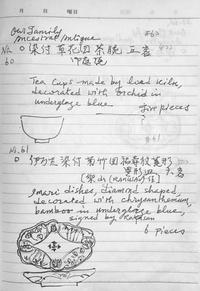 月 日 曜日
Our Family
Ancestral Antique
#60
No. 染付 草花図 茶碗 五客
60
Tea Cups made by local kiln,
decorated with orchid in
underglaze blue.
five pieces
?
#61
No. 61
伊万里 染付 菊竹図
Imari dishes, diamond shaped,
decorated with chrysanthemum,
bamboo in underglaze blue,
signed by
6 pieces